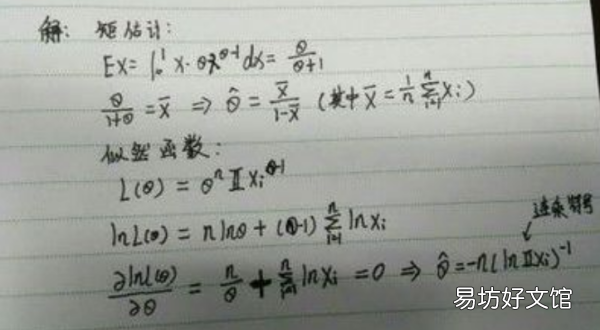 解: 矩估计:
EX = ∫₀¹ x·θx^(θ-1) dx = θ/(θ+1)
θ/(1+θ) = X̄ ⇒ θ̂ = X̄/(1-X̄) (其中 X̄ = (1/n) Σ_{i=1}^{n} Xi)
似然函数:
L(θ) = θ^n Π Xi^(θ-1)
lnL(θ) = n lnθ + (θ-1) Σ_{i=1}^{n} ln Xi
连乘符号
∂lnL(θ)/∂θ = n/θ + Σ_{i=1}^{n} ln Xi = 0 ⇒ θ̂ = -n(ln Π Xi)^(-1)
易坊好文馆